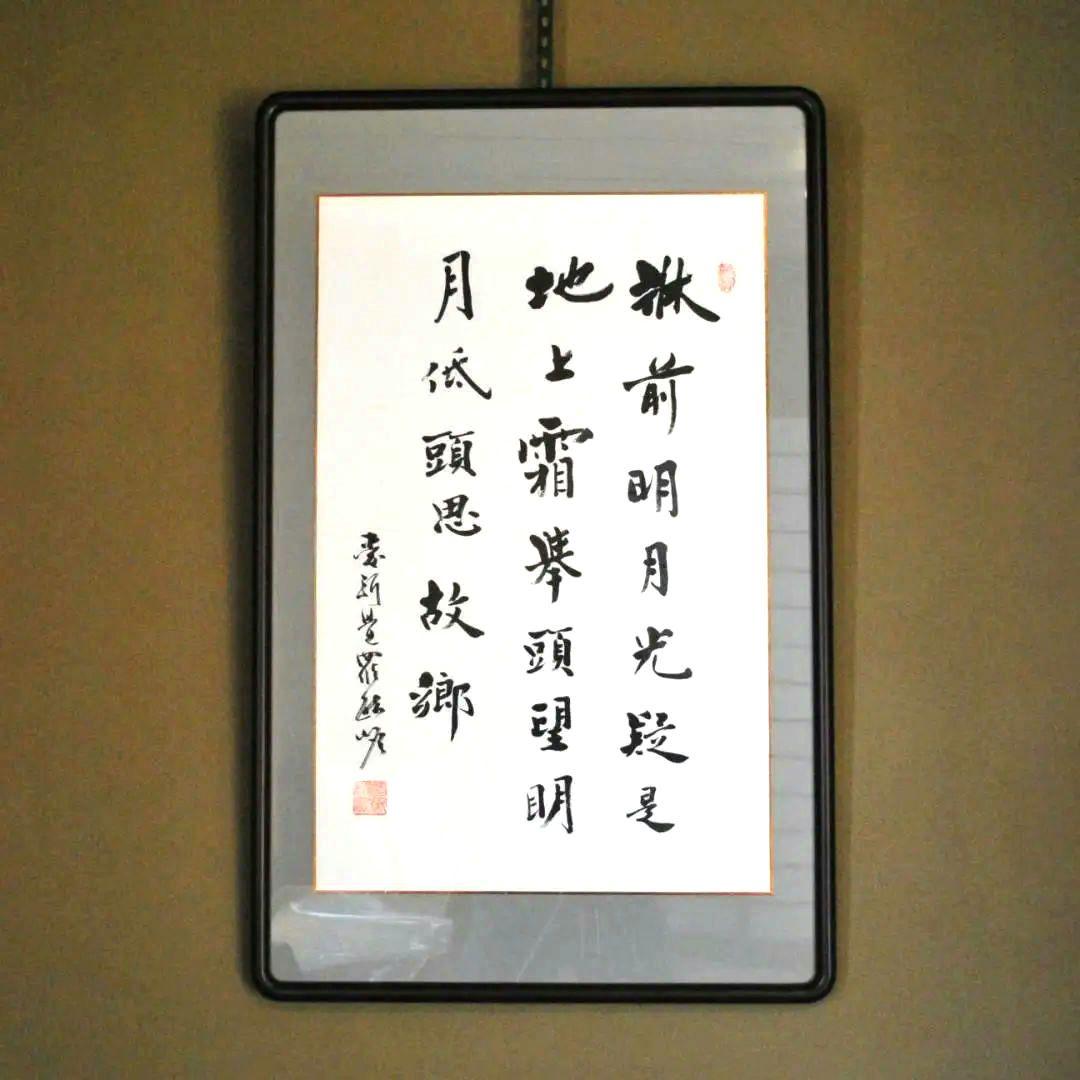 牀前明月光疑是
地上霜舉頭望明
月低頭思故鄉
愛新覺羅